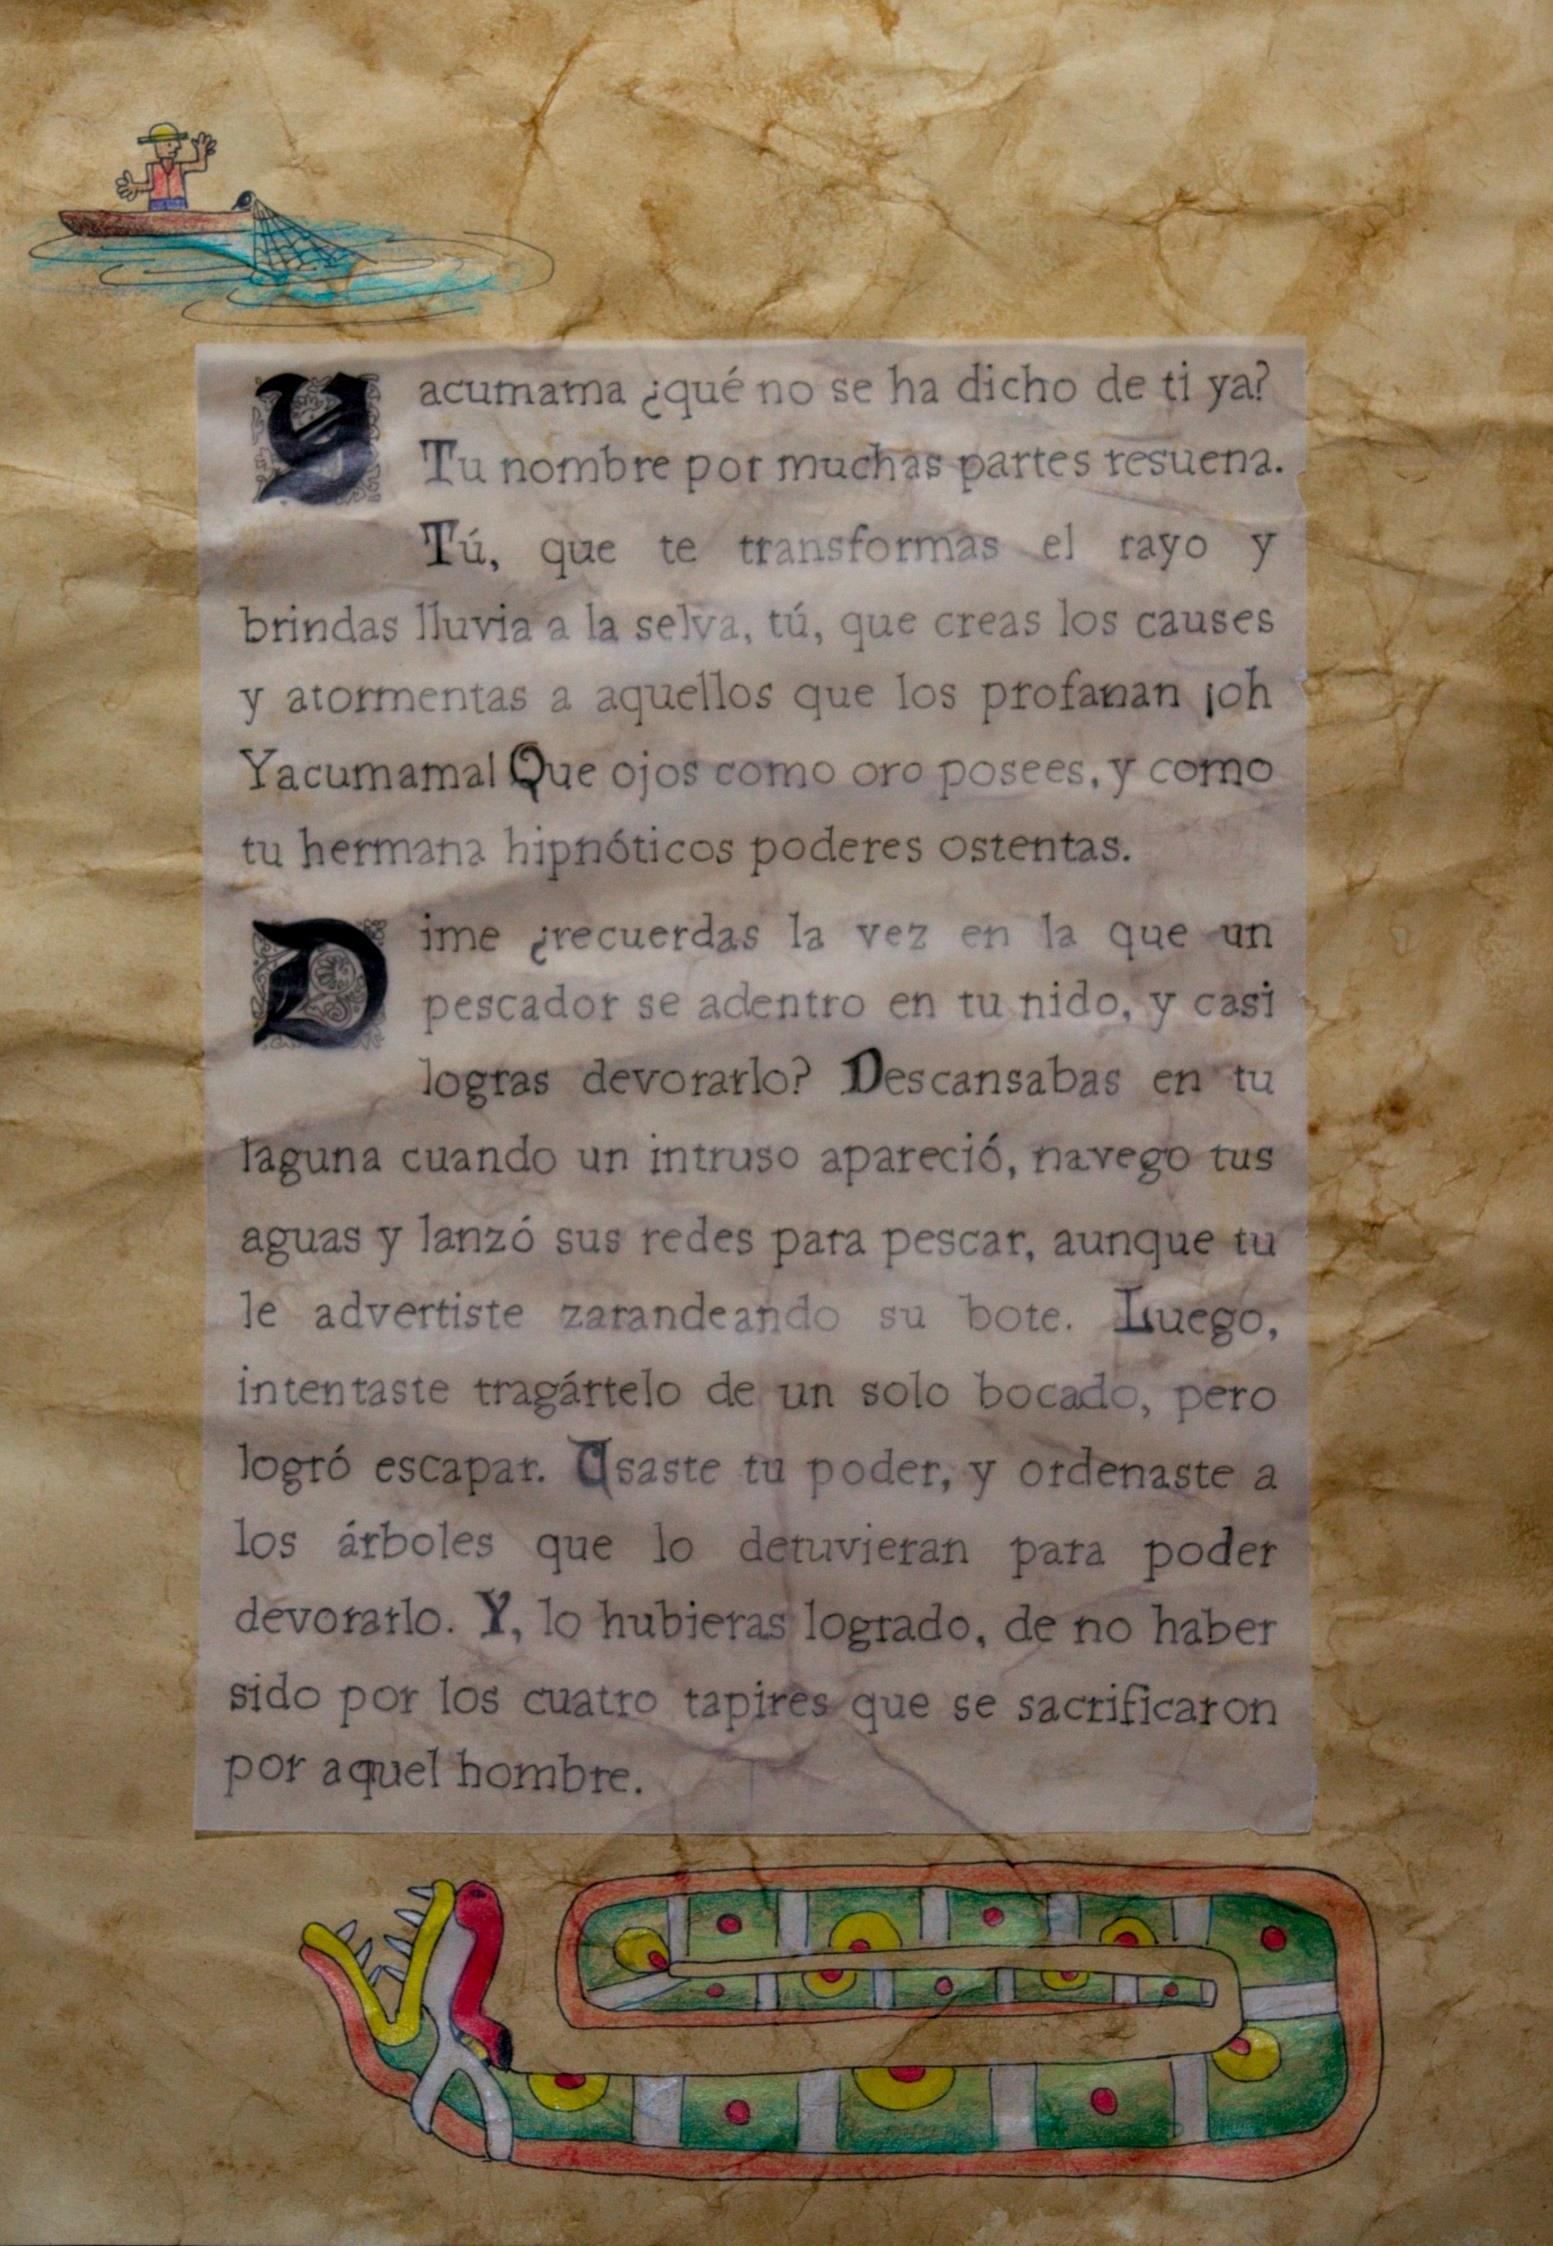 Yacumama ¿qué no se ha dicho de ti ya?
Tu nombre por muchas partes resuena.
Tú, que te transformas el rayo y
brindas lluvia a la selva, tú, que creas los causes
y atormentas a aquellos que los profanan ¡oh
Yacumama! Que ojos como oro posees, y como
tu hermana hipnóticos poderes ostentas.
Dime ¿recuerdas la vez en la que un
pescador se adentro en tu nido, y casi
logras devorarlo? Descansabas en tu
laguna cuando un intruso apareció, navego tus
aguas y lanzó sus redes para pescar, aunque tu
le advertiste zarandeando su bote. Luego,
intentaste tragártelo de un solo bocado, pero
logró escapar. Usaste tu poder, y ordenaste a
los árboles que lo detuvieran para poder
devorarlo. Y, lo hubieras logrado, de no haber
sido por los cuatro tapires que se sacrificaron
por aquel hombre.